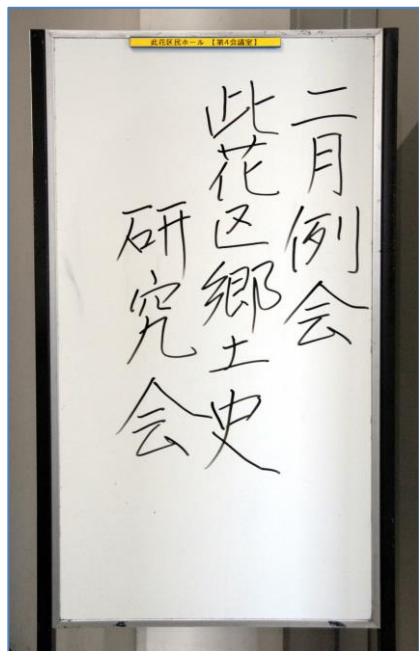 此花区民ホール 【第4会議室】
二月例会
此花区郷土史
研究会